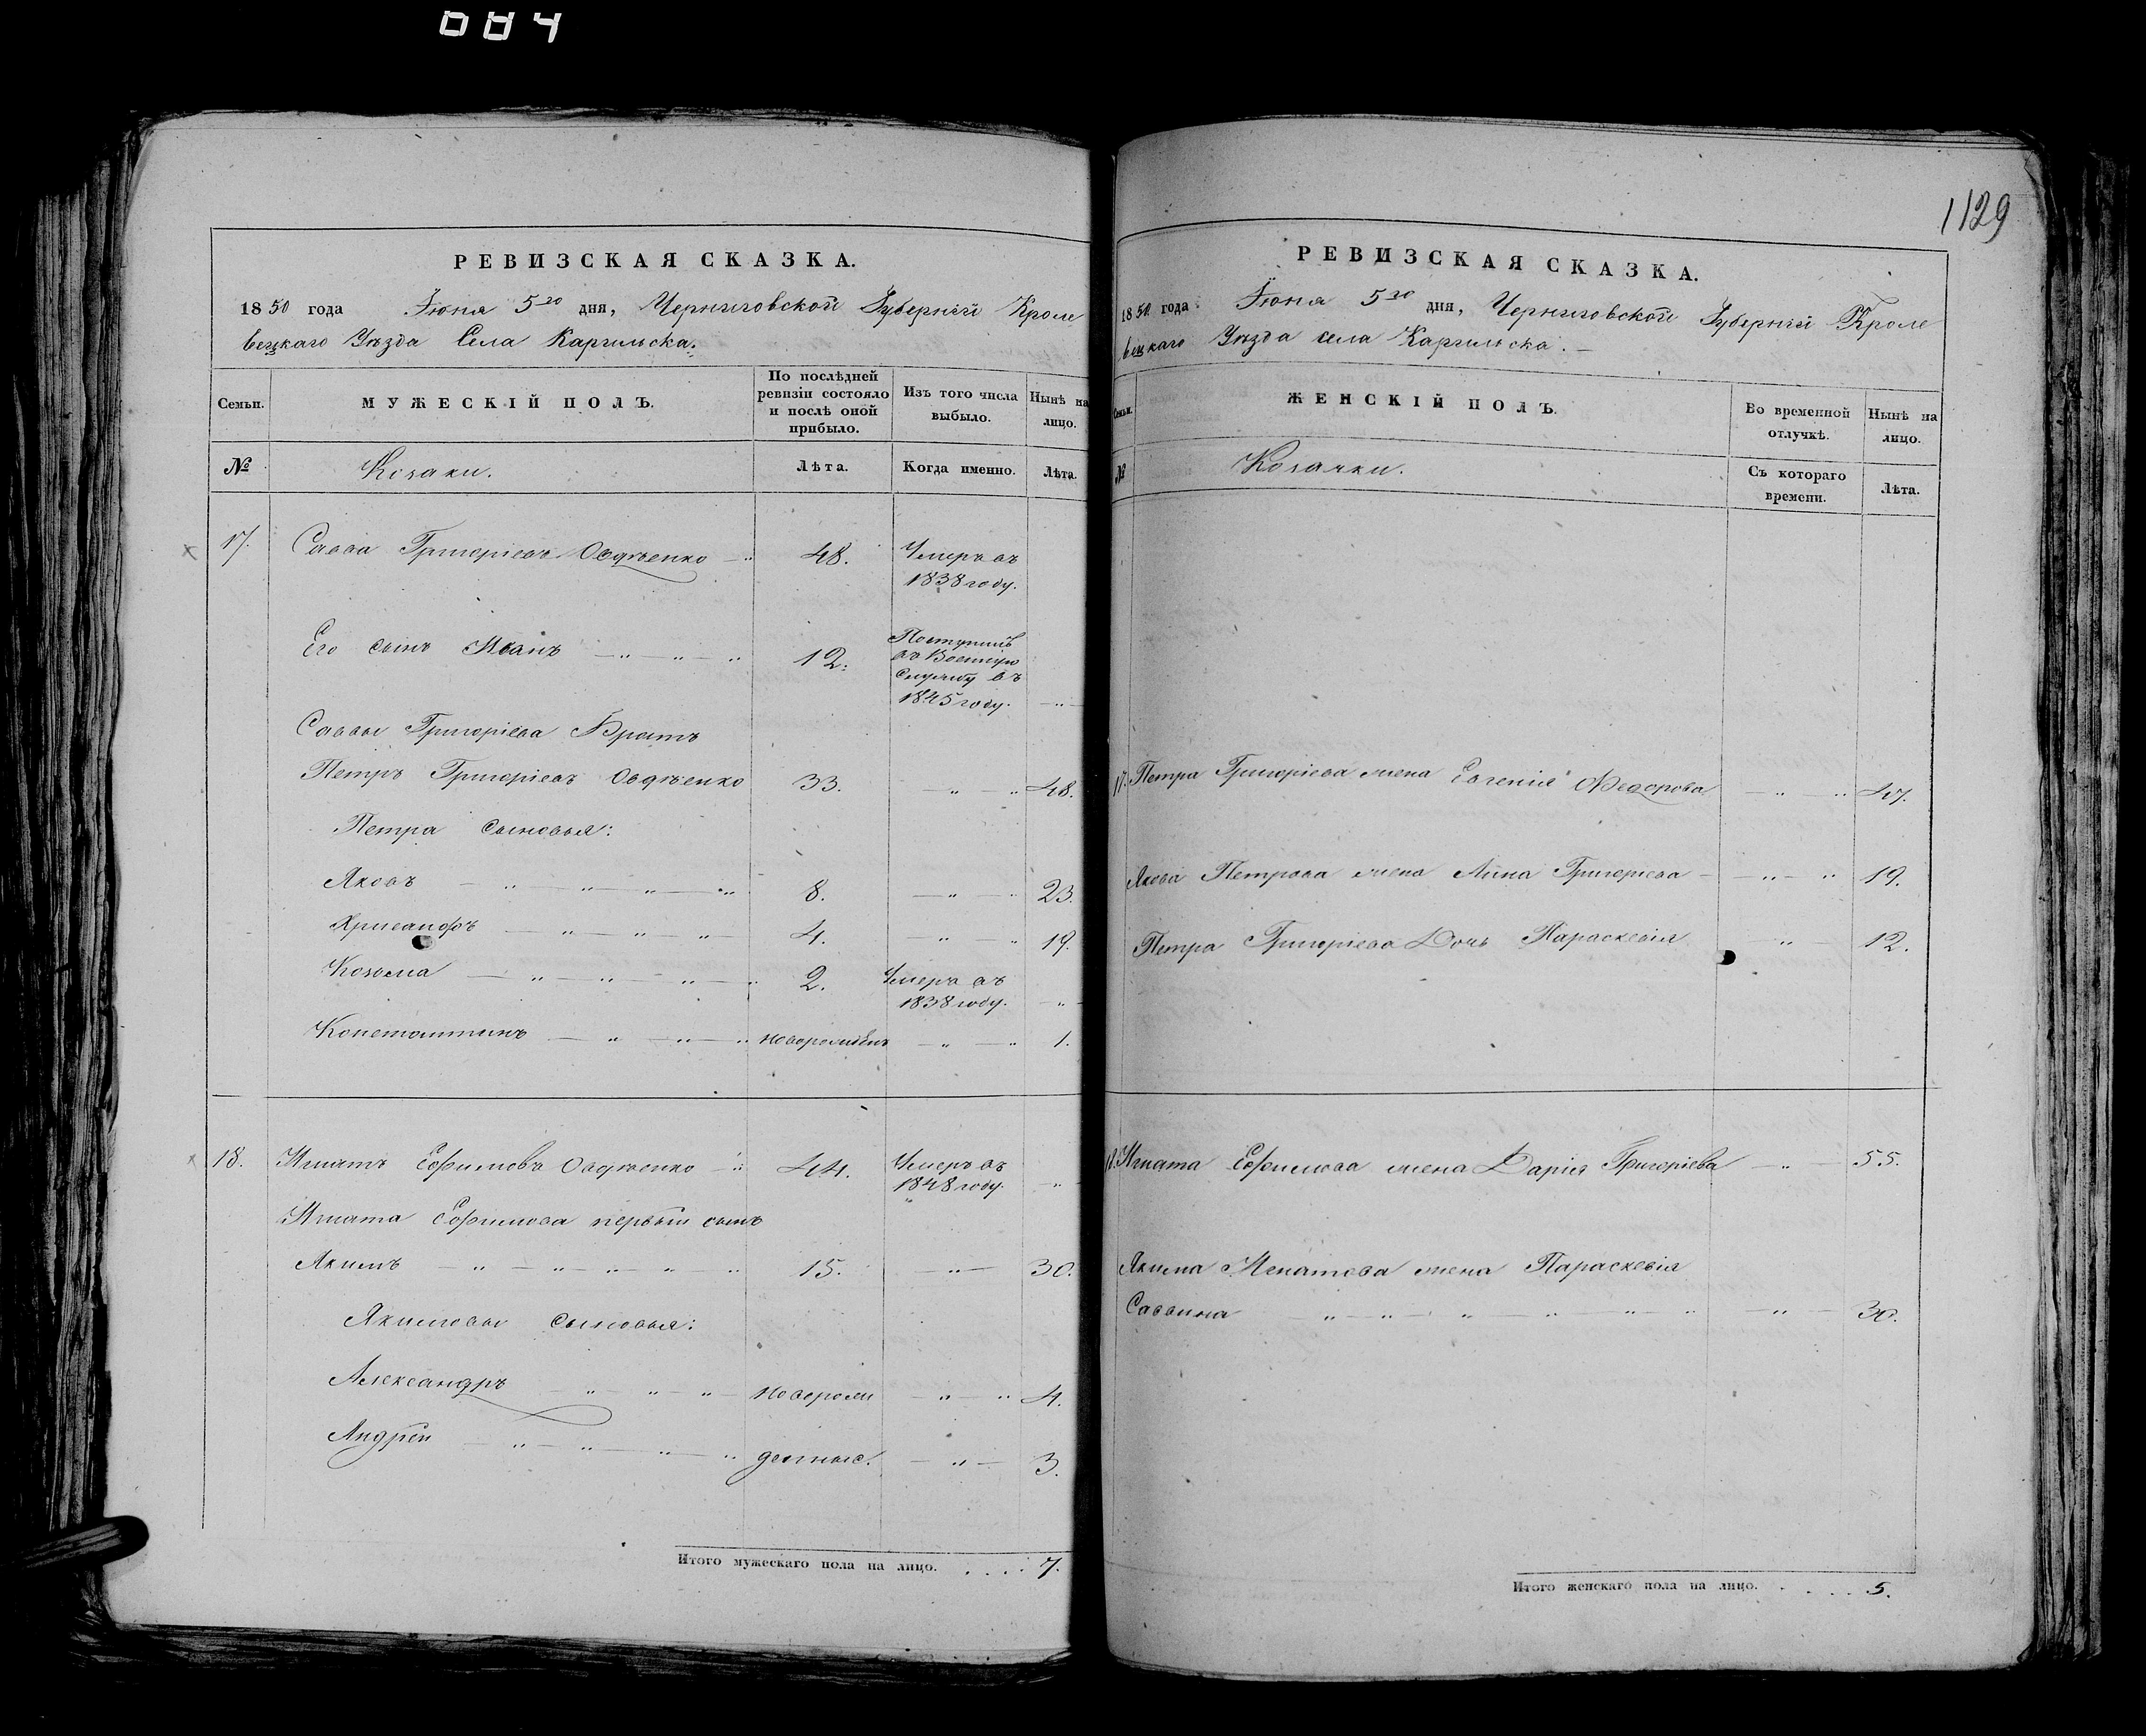 084
1129
РЕВИЗСКАЯ СКАЗКА.
1850 года Іюня 5го дня, Черниговской Губерніи Кроле
вецкаго Уѣзда Села Каргильска.
Семьи.
МУЖЕСКІЙ ПОЛЪ.
По послѣдней ревизіи состояло и послѣ оной прибыло.
Изъ того числа выбыло.
Нынѣ на лицо.
№
Козаки.
Лѣта.
Когда именно.
Лѣта.
17. Савва Григоріевъ Овдѣенко 48. Умеръ въ
1838 году.
Его сынъ Иванъ 12. Поступилъ
въ Военную
службу въ
1845 году.
Саввы Григоріева Братъ
Петръ Григоріевъ Овдѣенко 33. 48.
Петра сыновья:
Яковъ 8. 23.
Хрисанфъ 4. 19.
Козьма 2. Умеръ въ
1838 году.
Константинъ новорожден 1.
18. Игнатъ Ефимовъ Овдѣенко 44. Умеръ въ
1848 году.
Игната Ефимова первый сынъ
Якимъ 15. 30.
Якимовы сыновья:
Александръ новорож 4.
Андрей денные. 3.
Итого мужескаго пола на лицо. . . . . 7.
РЕВИЗСКАЯ СКАЗКА.
1850 года Іюня 5го дня, Черниговской Губерніи Кроле
вецкаго Уѣзда села Каргильска.
Семьи.
ЖЕНСКІЙ ПОЛЪ.
Во временной отлучкѣ.
Нынѣ на лицо.
№
Козачки.
Съ котораго времени.
Лѣта.
17. Петра Григоріева жена Евгенія Федорова 47.
Якова Петрова жена Анна Григоріева 19.
Петра Григоріева Дочь Параскевія 12.
18. Игната Ефимова жена Дарія Григоріева 55.
Якима Игнатова жена Параскевія
Саввина 30.
Итого женскаго пола на лицо. . . . . 5.